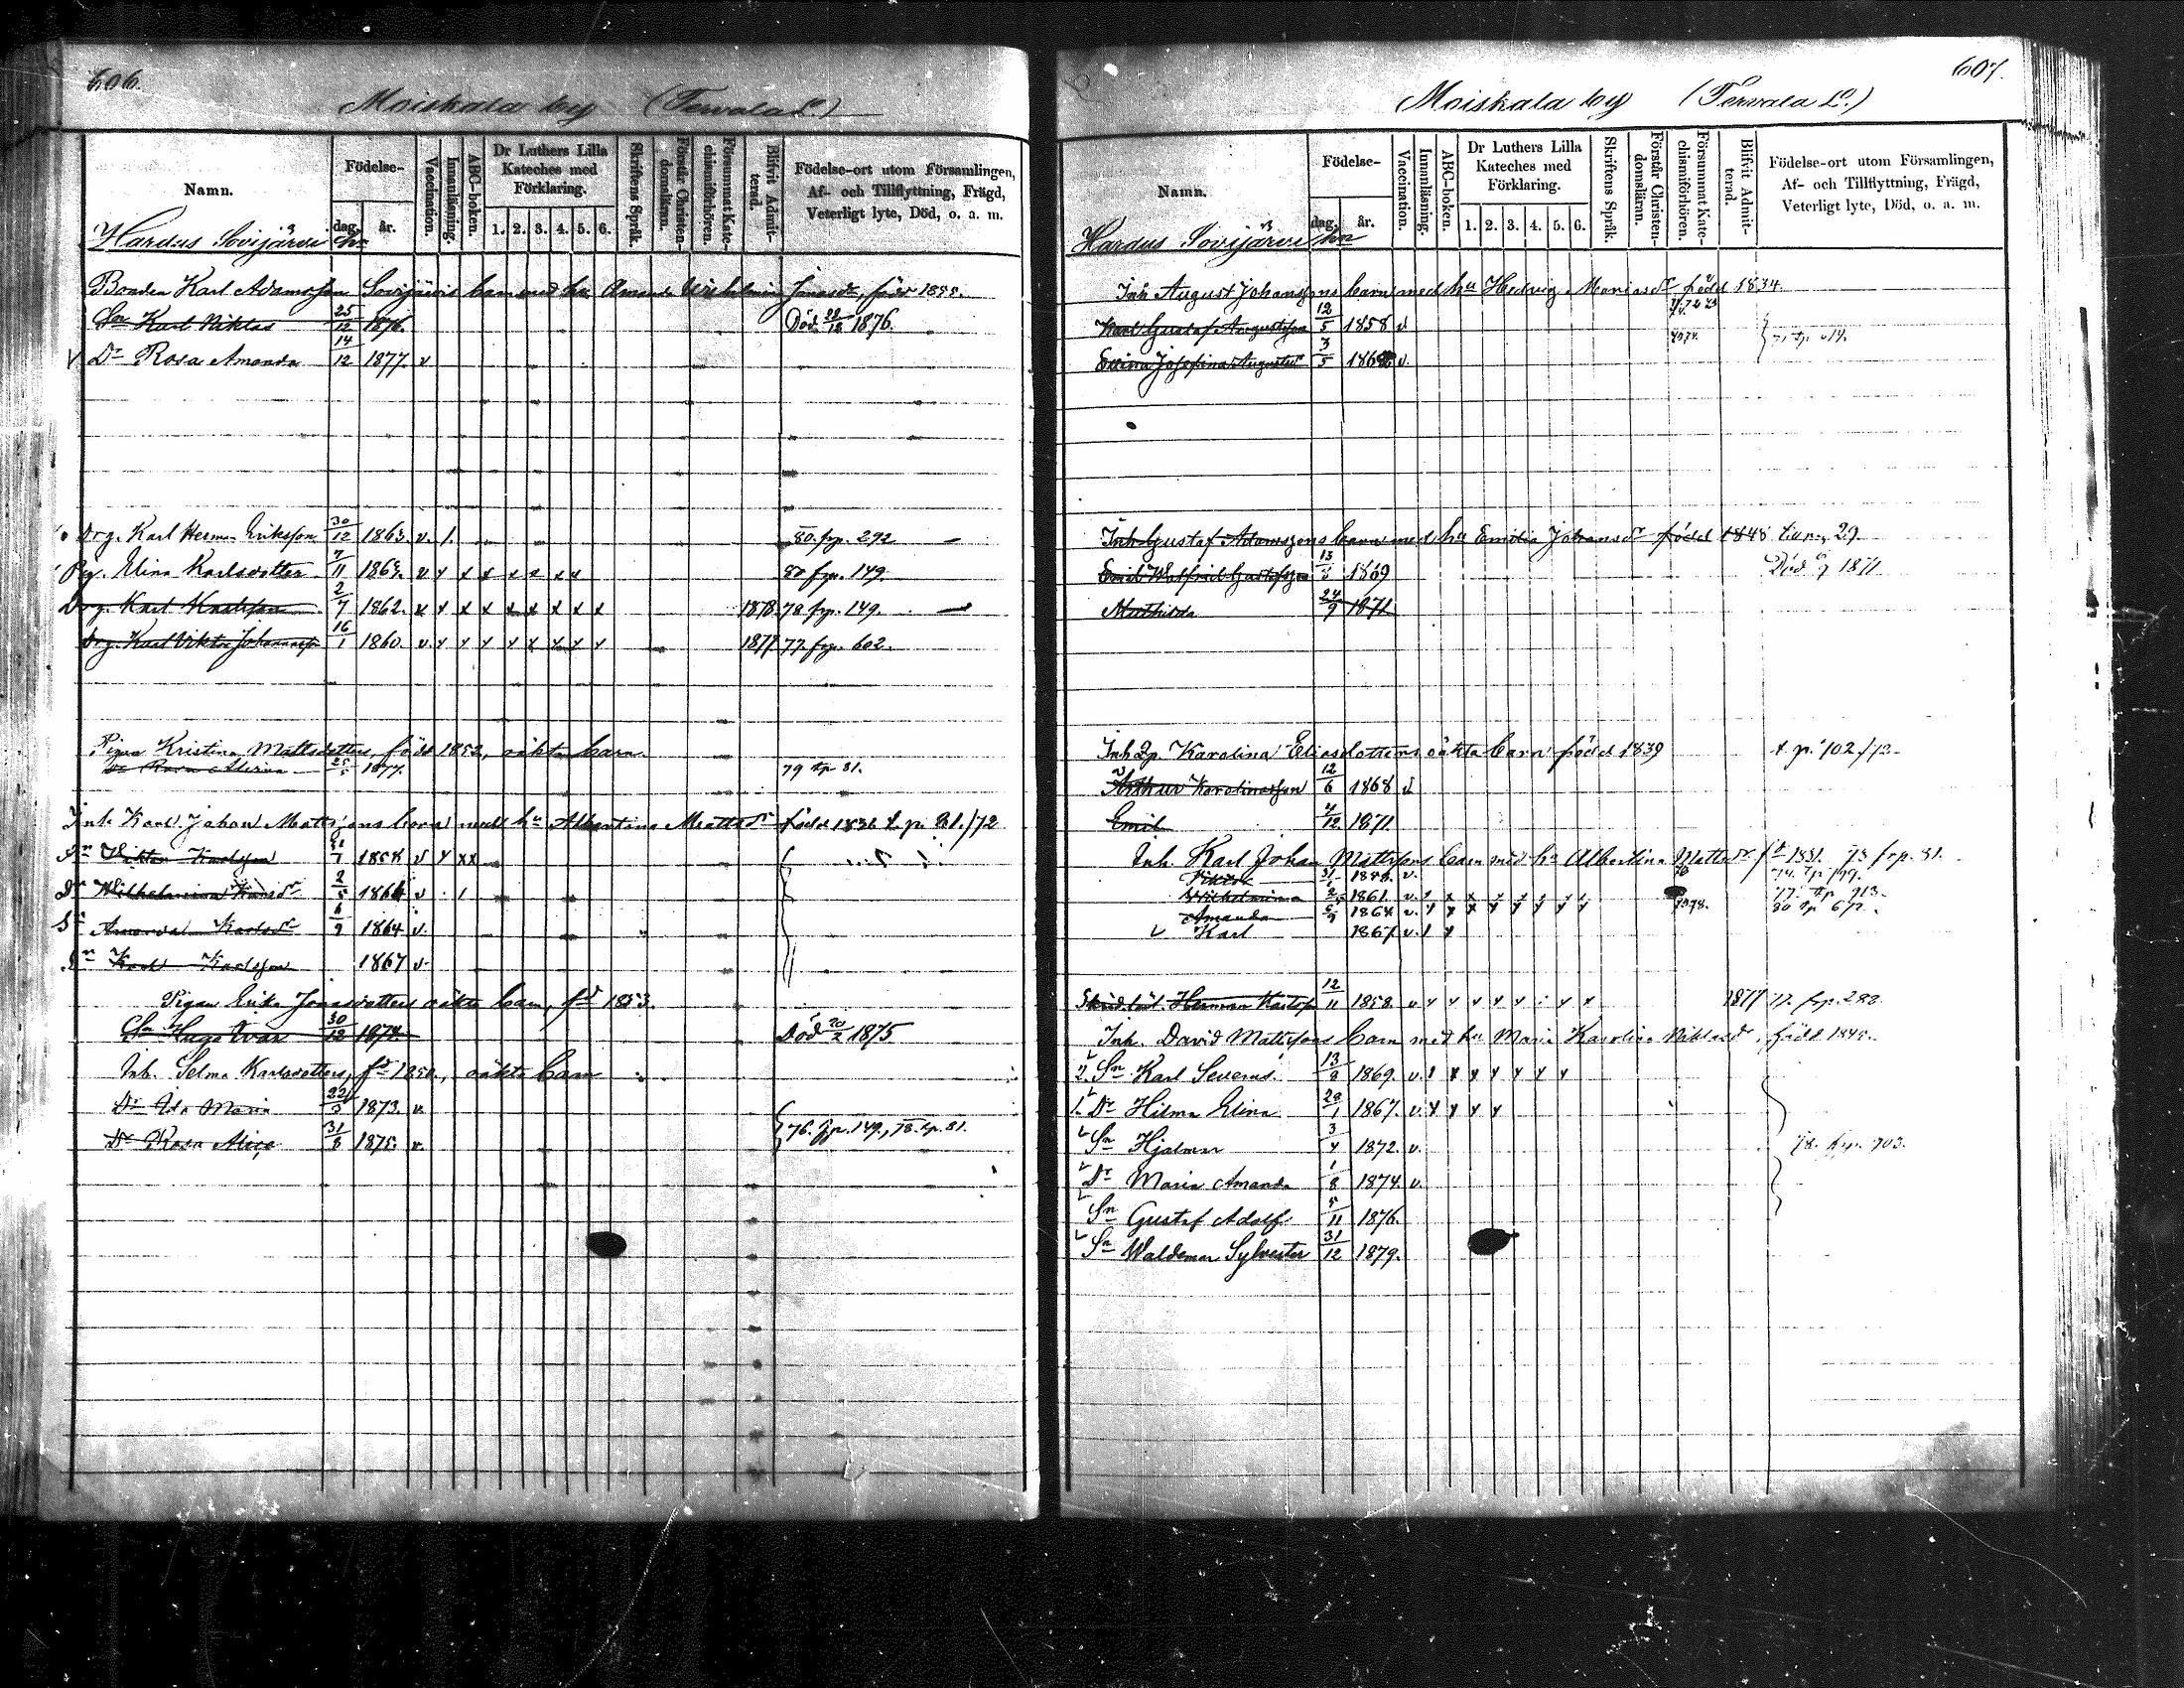 606.
Moiskala by (Tervala L.)
Namn.
Födelse-
dag.
år.
Vaccination.
Innanläsning.
ABC-boken.
Dr Luthers Lilla Kateches med Förklaring.
1. 2. 3. 4. 5. 6.
Skriftens Språk.
Förstår Christendomsläran.
Försummat Katechismiförhören.
Blifvit Admitterad.
Födelse-ort utom Församlingen, Af- och Tillflyttning, Frägd, Veterligt lyte, Död, o. a. m.
Hardus Sovijärvi
Bonden Karl Adamsson Sovijärvis barn med hu Amanda Wilhelmina Jonasdr, född 1855.
Sn Karl Niklas 25/12 1876. Död 28/12 1876.
v Dr Rosa Amanda 14/12 1877. v
Drg. Karl Herman Eriksson 30/12 1863. v. 80. frp. 292
Pig. Elina Karlsdotter 7/11 1863. v x x x x x x x 80 frp. 149.
Drg. Karl Karlsson 2/7 1862. x x x x x x x x x 1878 78 frp. 149.
Drg. Karl Viktor Johansson 16/1 1860. v. x x x x x x x x 1877 77. frp. 602.
Pigan Kristina Mattsdotters, född 1852, oäkta barn.
Dr Rosa 25/5 1877. 79 tp 81.
Inh. Karl Johan Mattssons barn med hu Albertina Mattsdr född 1836 t. p. 81./72
Sn Viktor Karlsson 1858 v x x x
Dr Wilhelmina Karlsdr 2/5 1861 v
Amanda Karlsdr 6/9 1864 v.
Sn Karl Karlsson 1867 v.
Pigan Erika Jonasdotters oäkta barn, fd 1853.
Sn Hugo Ivar 30/12 1874. Död 20/2 1875
Inh. Selma Karlsdotters, fd 1850, oäkta barn
Dr Ida Maria 22/3 1873. v.
Dr Rosa Alina 31/8 1875. v. 76. frp. 149., 78. tp. 81.
607.
Moiskala by (Tervala L.)
Namn.
Födelse-
dag.
år.
Vaccination.
Innanläsning.
ABC-boken.
Dr Luthers Lilla Kateches med Förklaring.
1. 2. 3. 4. 5. 6.
Skriftens Språk.
Förstår Christendomsläran.
Försummat Katechismiförhören.
Blifvit Admitterad.
Födelse-ort utom Församlingen, Af- och Tillflyttning, Frägd, Veterligt lyte, Död, o. a. m.
Hardus Sovijärvi
Inh August Johanssons barn med hu Hedvig Mariasdr född 1834.
Karl Gustaf Augustsson 12/5 1858 v
Evina Josefina Augustsdr 3/5 v.
Inh Gustaf Adamssons barn med hu Emilia Johansdr född 1848 till pag. 29.
Emil Walfrid Gustafsson 13/3 1869 Död 1871
Mathilda 24/9 1871
Inh Qp. Karolina Eliasdotters oäkta barn född 1839 t. p. 102/73
Arthur Karolinasson 12/6 1868 v
Emil 4/12. 1871.
Inh. Karl Johan Mattssons barn med hu Albertina Mattsdr fd 1831. 73 frp. 81.
Viktor 31/1 1858. v. 74. tp 149.
Wilhelmina 2/5 1861. v. 77. tp 713.
Amanda 6/9 1864 v. x x x x x x x x 80 tp 672.
v Karl 1867 v.
Herman Karlsson 12/11 1858. v x x x x x x x 1877 77. frp. 288.
Inh. David Mattssons barn med hu Maria Karolina Niklasdr, född 1845.
2. Sn Karl Severus 13/8 1869. v. x x x x x x x
1. Dr Hilma Elina 29/1 1867. v. x x x x
Sn Hjalmar 3/4 1872. v. 78. frp. 703.
Dr Maria Amanda 1/8 1874 v.
Sn Gustaf Adolf 5/11 1876.
Sn Waldemar Sylvester 31/12 1879.